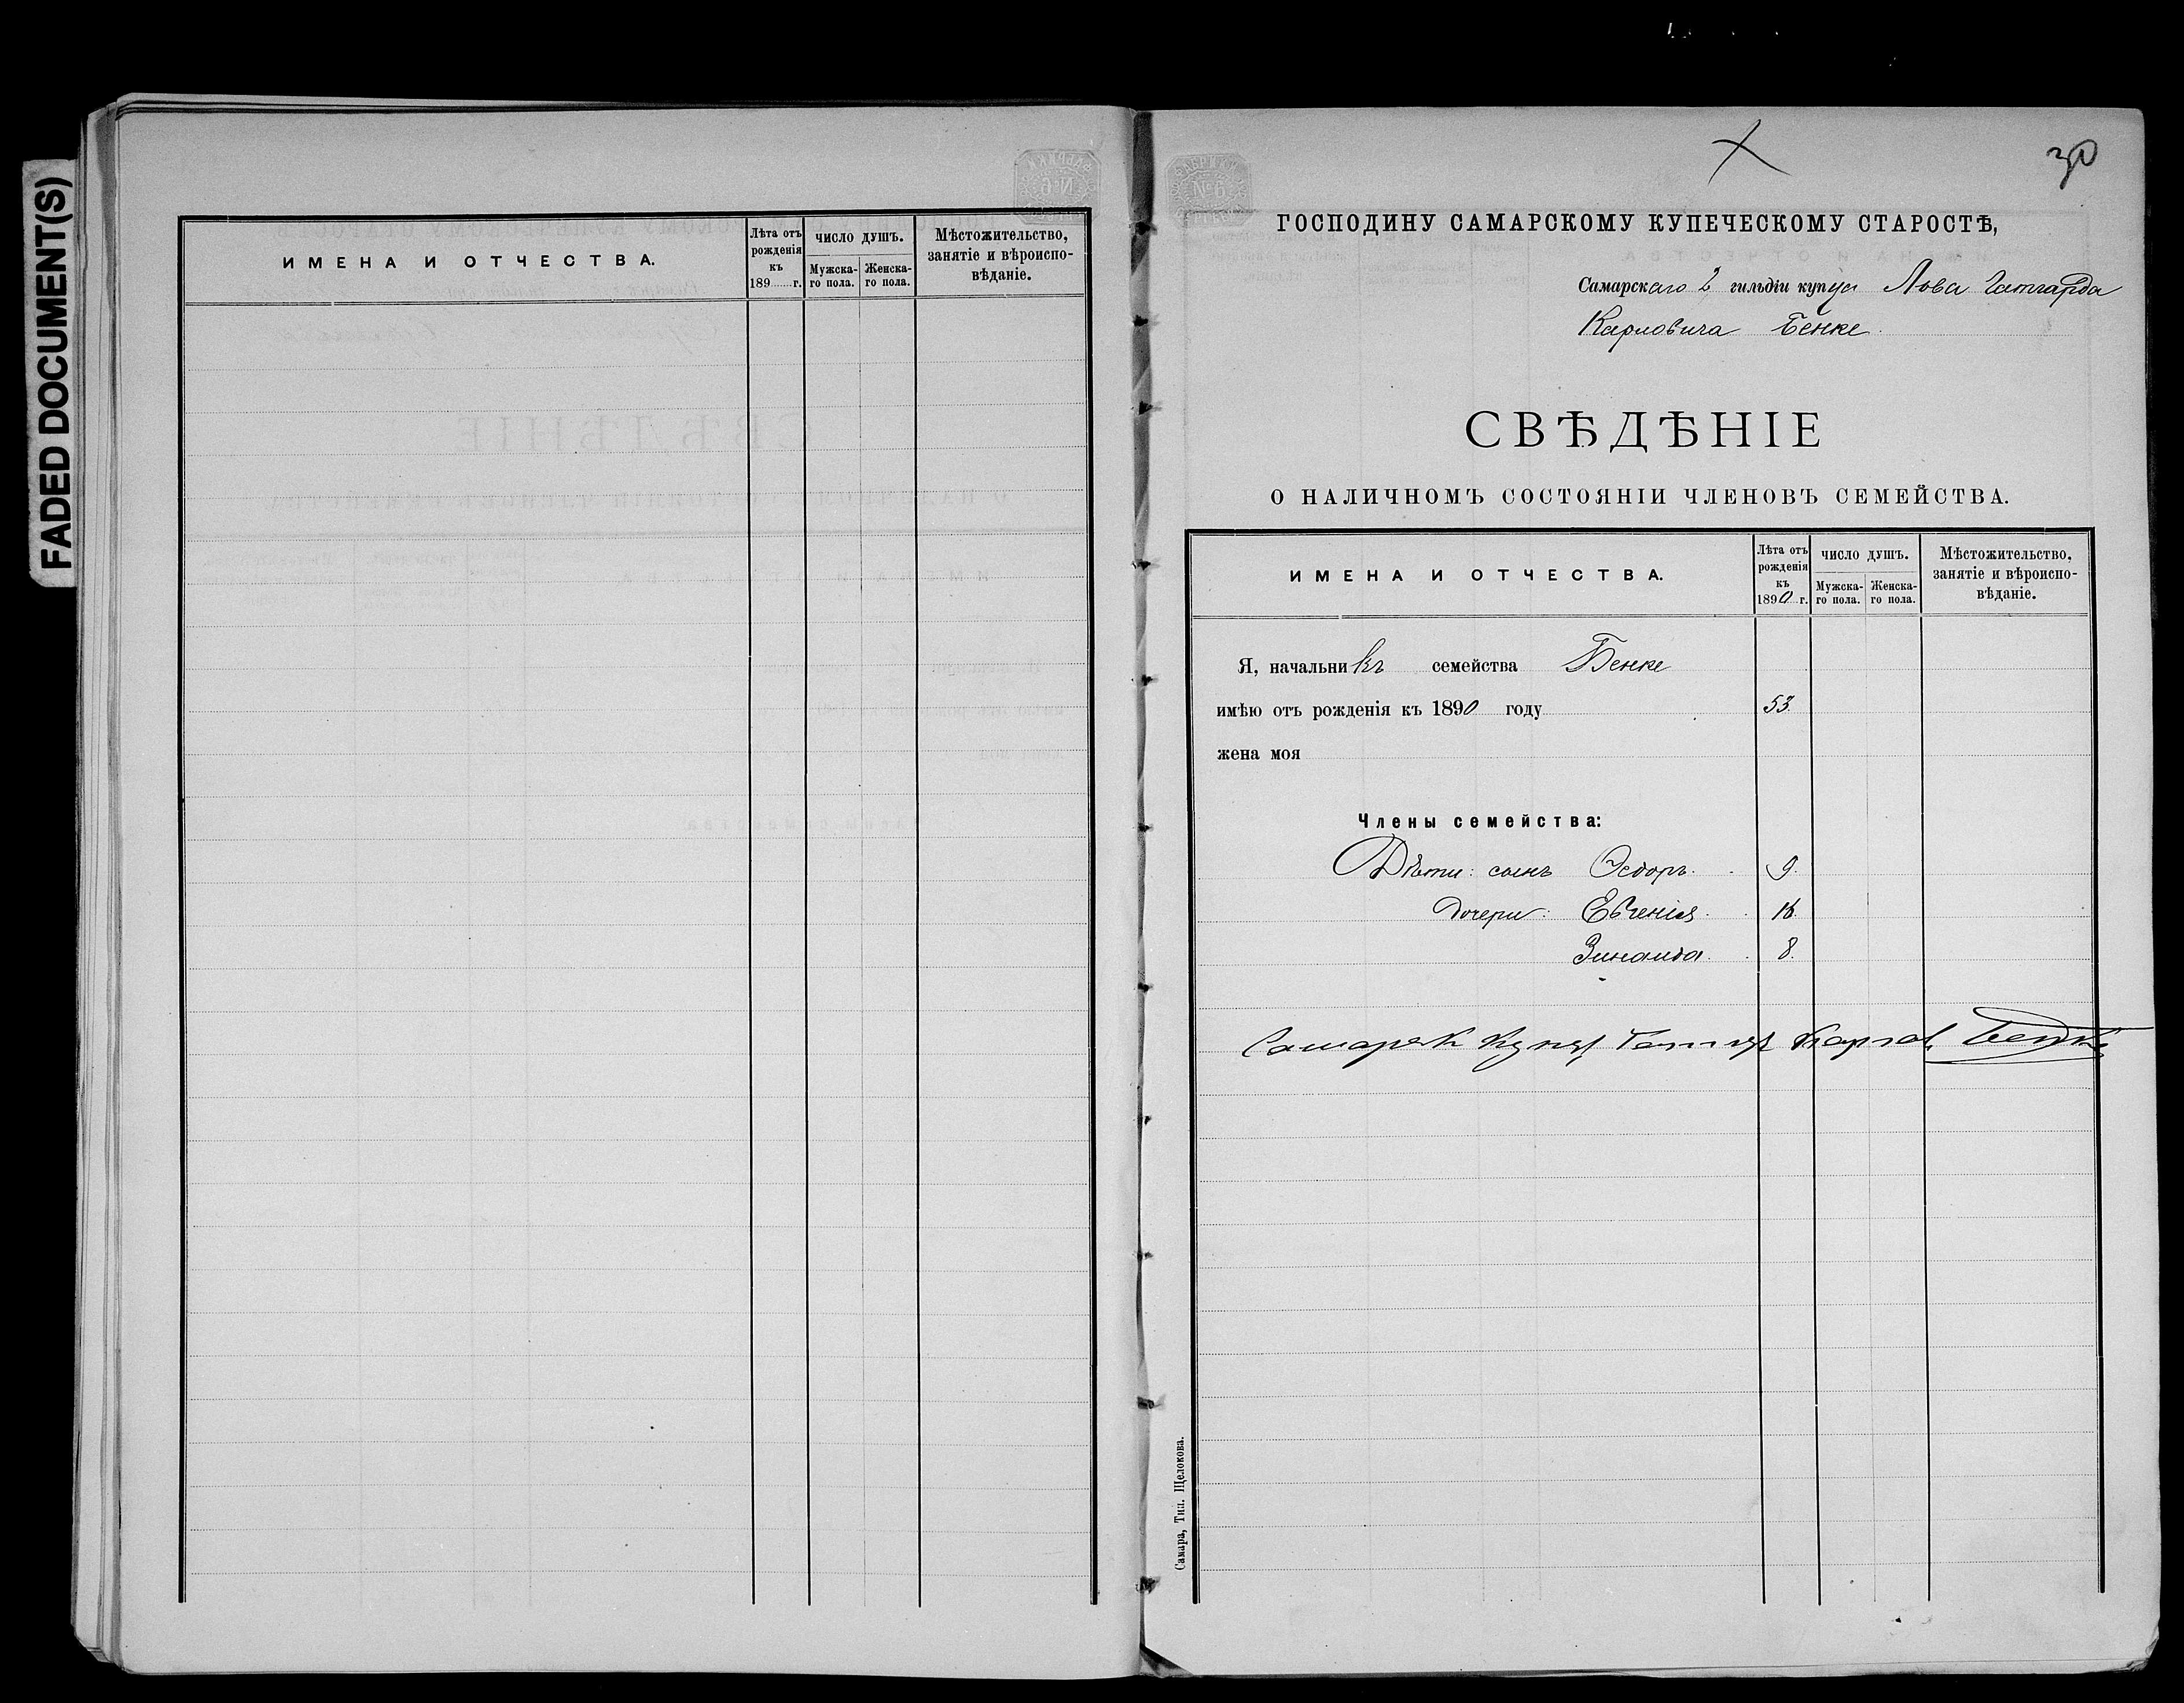 FADED DOCUMENT(S)
ИМЕНА И ОТЧЕСТВА.
Лѣта отъ рожденія къ 189 г.
ЧИСЛО ДУШЪ.
Мужска-го пола.
Женска-го пола.
Мѣстожительство, занятіе и вѣроиспо-вѣданіе.
30
№ 6
ГОСПОДИНУ САМАРСКОМУ КУПЕЧЕСКОМУ СТАРОСТѢ,
Самарскаго 2 гильдіи купца Льва Готгарда
Карловича Бенке.
СВѢДѢНІЕ
О НАЛИЧНОМЪ СОСТОЯНІИ ЧЛЕНОВЪ СЕМЕЙСТВА.
ИМЕНА И ОТЧЕСТВА.
Лѣта отъ рожденія къ 1890 г.
ЧИСЛО ДУШЪ.
Мужска-го пола.
Женска-го пола.
Мѣстожительство, занятіе и вѣроиспо-вѣданіе.
Я, начальникъ семейства Бенке
имѣю отъ рожденія къ 1890 году 53
жена моя
Члены семейства:
Дѣти: сынъ Ѳедоръ. 9.
Дочери: Евгенія. 16
Зинаида. 8.
Купец Карлов Бенке
Самара, Тип. Щелокова.